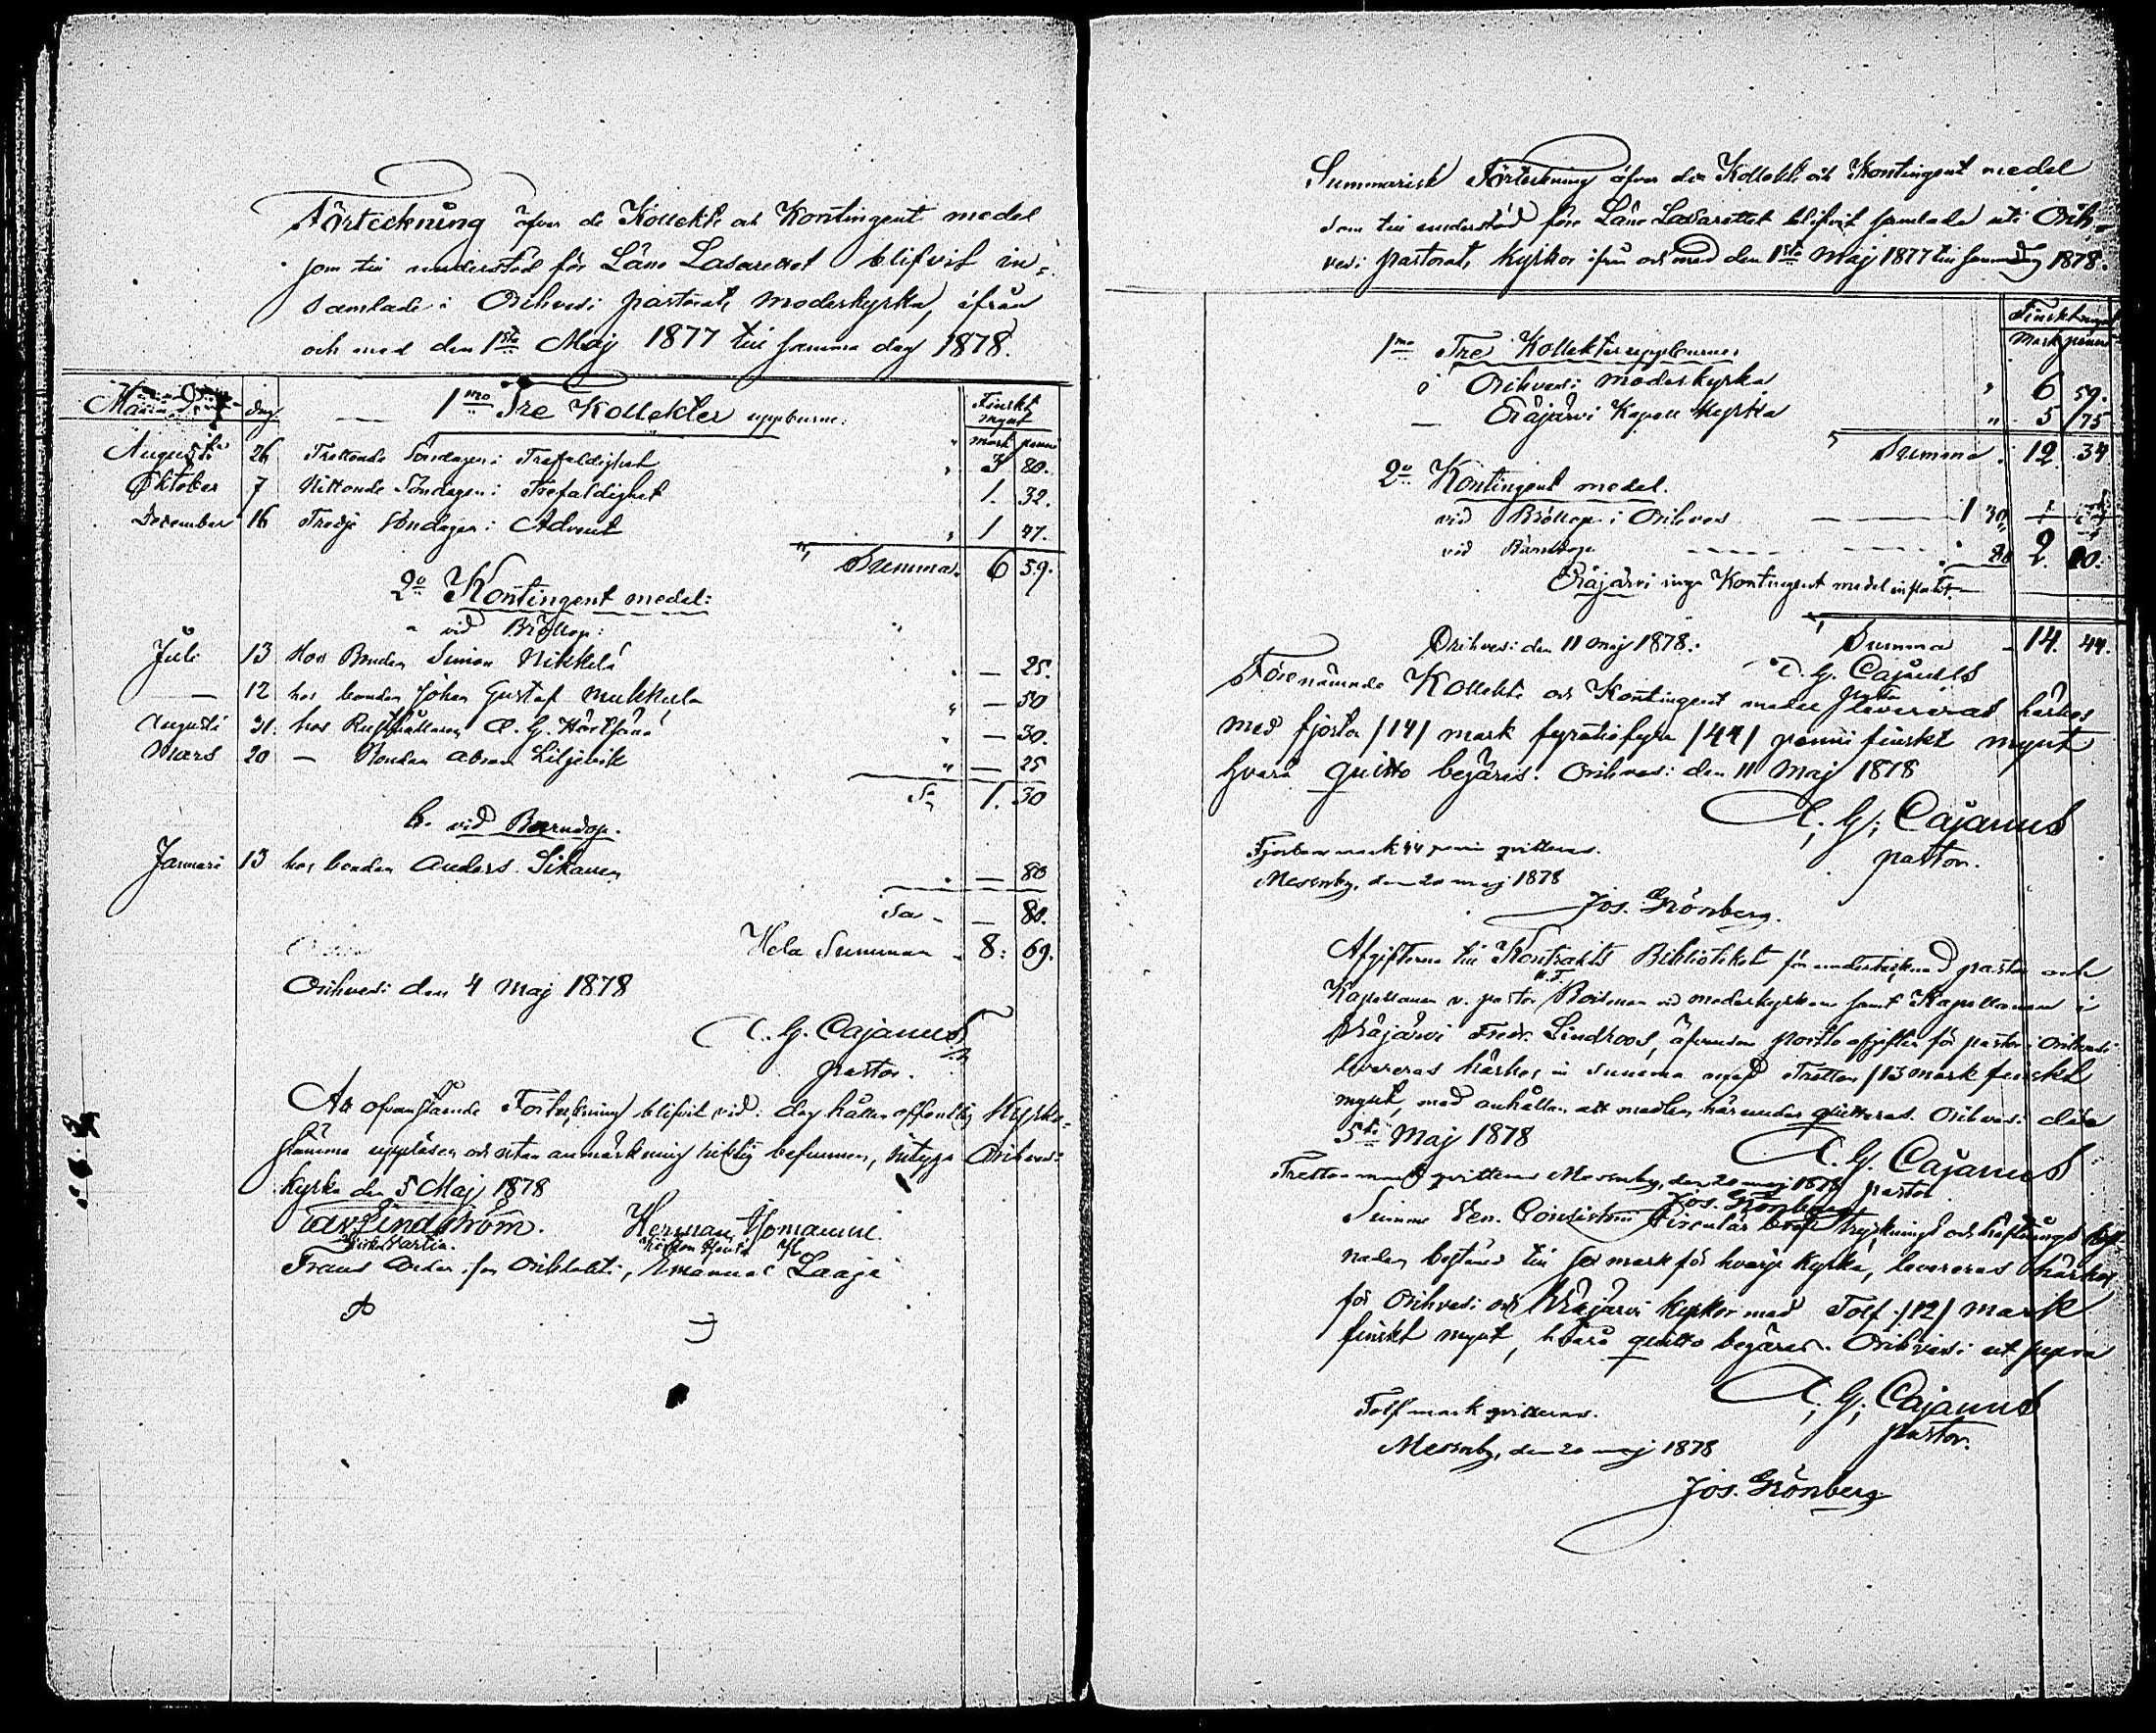 Förteckning öfver de Kollekt och Kontingent medel
som till understöd för Läne Lasarettet blifvit in-
samlade i Orihvesi pastorats moderkyrka, ifrån
och med den 1sta Maj 1877 till samma dag 1878.
dag 1mo Tre Kollekter uppburne: Finskt mynt
mark penni
Augusti 26 Trettonde Söndagen i Trefaldighet " 3 80.
Oktober 7 Nittonde Söndagen i Trefaldighet 1. 32.
December 16 Tredje Söndagen i Advent " 1 47.
Summa 6 59.
2o Kontingent medel:
a vid Bröllop:
Juli 13 Hos Bonden Simon Nikkilä " — 25.
— 12 hos bonden Johan Gustaf Mukkula " — 50
Augusti 31. hos Rusthållaren C. G. — 30.
Mars 20 — Bonden Abram Liljevik " — 25
Sa 1. 30
b. vid Barndop.
Januari 13 hos bonden Anders Sikanen — 80
Sa — 80.
Hela Summan 8: 69.
Orihvesi den 4 Maj 1878
A. G. Cajanus
pastor.
Att ofvanstående Förteckning blifvit vid i dag hållen offentlig Kyrko-
stämma uppläsen och utan anmärkning riktig befunnen, intyga Orihvesi
Kyrka den 5 Maj 1878
Lindström. Herman
Frans Emanuel Laaja
Summarisk Förteckning öfver de Kollekt och Kontingent medel
som till understöd för Läne Lasarettet blifvit samlade uti Orih-
vesi pastorats Kyrkor ifrån och med den 1sta Maj 1877 till samma dag 1878.
Finskt mynt
Mark penni
1mo Tre Kollekter uppburne
i Orihvesi moderkyrka " 6 59.
— Eräjärvi Kapell Kyrka " 5 75
Summa 12 34
2o Kontingent medel.
vid Bröllop i Orihvesi 1 30
vid Barndop 80 2. 10.
Eräjärvi inga Kontingent medel influtit
Summa 14. 44.
Orihvesi den 11 Maj 1878.
A. G. Cajanus
pastor
Förenämnde Kollekt och Kontingent medel levereras härhos
med fjorton /14/ mark fyratiofyra /44/ penni finskt mynt
hvarå quitto begäres. Orihvesi den 11 Maj 1878
A. G. Cajanus
pastor.
Fjorton mark 44 penni qvitteras.
Messuby, den 20 maj 1878
Jos. Grönberg.
Afgifterne till Kontrakts Biblioteket för undertecknad pastor och
Kapellanen v. pastor Roitman vid moderkyrkan samt Kapellanen i
Eräjärvi Fredr. Lindroos, äfvensom porto afgiften för pastor i Orihvesi
levereras härhos in summa med Tretton /13 mark finskt
mynt, med anhållan att medlen härunder quitteras. Orihvesi
5te Maj 1878
A. G. Cajanus
pastor
Tretton mark qvitteras Messuby, den 20 maj 1878
Jos. Grönberg
Summa Ven. Consistorii Circulär bref trycknings och häftnings
naden bestånd till sex mark för hvarje kyrka, levereras härhos
för Orihvesi och Eräjärvi Kyrkor med Tolf /12/ mark
finskt mynt, hvarå quitto begäres. Orihvesi ut supra
A. G. Cajanus
pastor.
Tolf mark qvitteras.
Messuby, den 20 maj 1878
Jos. Grönberg